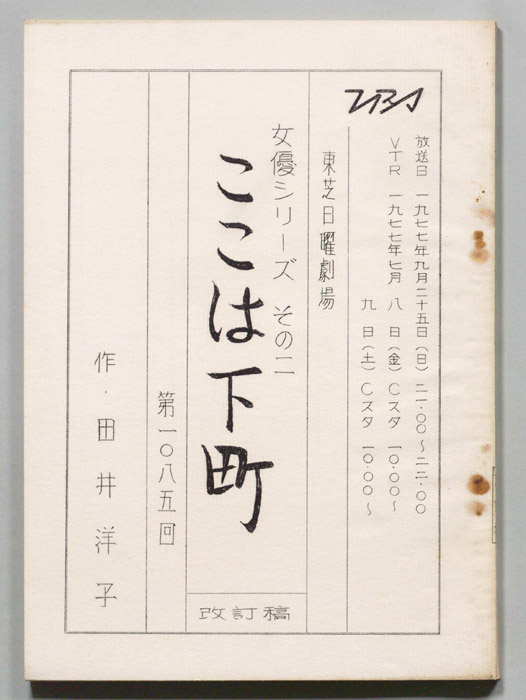 TBS
放送日 一九七七年九月二十五日(日) 二一・〇〇~二二・〇〇
VTR 一九七七年七月 八 日(金) Cスタ 一〇・〇〇~
九 日(土) Cスタ 一〇・〇〇~
東芝日曜劇場
女優シリーズ その二
ここは下町
改訂稿
第一〇八五回
作・田井洋子